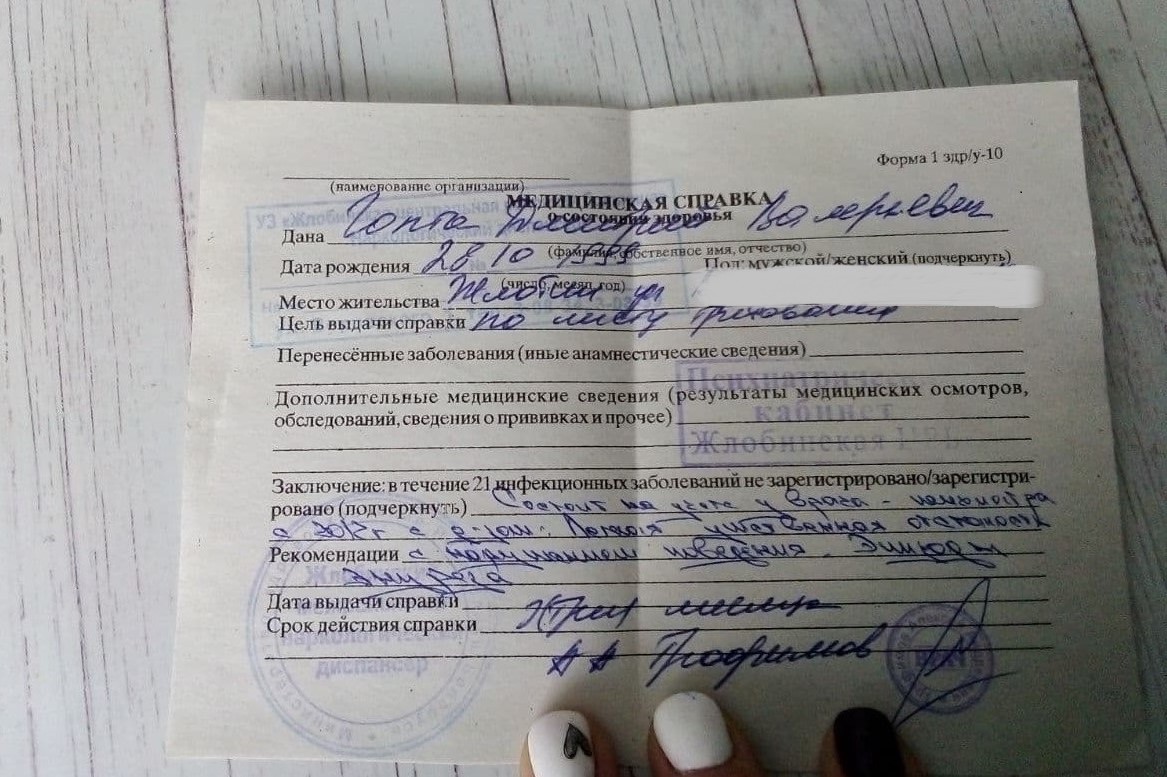 Форма 1 здр/у-10
(наименование организации)
МЕДИЦИНСКАЯ СПРАВКА
о состоянии здоровья
УЗ «Жлобинская центральная
Дана Валерьевич
(фамилия, собственное имя, отчество)
Дата рождения 28 10 1999 Пол: мужской/женский (подчеркнуть)
(число, месяц, год)
Место жительства Жлобин ул
Цель выдачи справки по листу требования
Перенесённые заболевания (иные анамнестические сведения)
Психиатрический
кабинет
Жлобинская ЦРБ
Дополнительные медицинские сведения (результаты медицинских осмотров,
обследований, сведения о прививках и прочее)
Заключение: в течение 21 инфекционных заболеваний не зарегистрировано/зарегистри-
ровано (подчеркнуть) Состоит на учете у врача -
с с д-зом: Легкая умственная отсталость
Рекомендации с нарушением поведения.
Дата выдачи справки
Срок действия справки
наркологический
диспансер